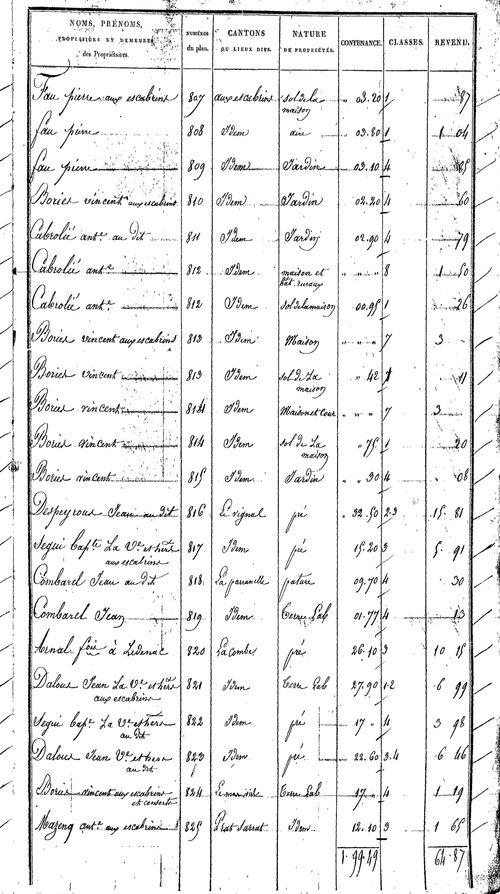 NOMS, PRÉNOMS, PROFESSIONS ET DEMEURES des Propriétaires. NUMÉROS du plan. CANTONS OU LIEUX DITS. NATURE DE PROPRIÉTÉS. CONTENANCE. CLASSES. REVENU.
Fau pierre aux escabrins 807 aux escabrins sol de la maison " 03.20 1 87
fau pierre 808 Idem aire " 03.80 1 1 04
fau pierre 809 Idem Jardin 03.10 4 85
Bories vincent aux escabrins 810 Idem Jardin 02.20 4 60
Cabrolié ant.e au dit 811 Idem Jardin 02.90 4 79
Cabrolié ant.e 812 Idem maison et bât. ruraux " " " 8 1 50
Cabrolié ant.e 812 Idem sol de la maison 00.95 1 26
Bories vincent aux escabrins 813 Idem Maison " " " 7 3 "
Bories vincent 813 Idem sol de La maison " 42 1 11
Bories vincent 814 Idem Maison et cour " " " 7 3
Bories vincent 814 Idem sol de La maison " 75 1 20
Bories vincent 815 Idem Jardin " 30 4 08
Despeyrous Jean au dit 816 Le vignal pré " 32.50 2.3 15. 81
Segui bap.te La V.e et hérs aux escabrins 817 Idem pré 15.20 3 5. 91
Combarel Jean au dit 818 pature 09.70 4 30
Combarel Jean 819 Idem Terre Lab 01.77 4 13
Arnal à Lédenac 820 La combe pré 26.10 3 10 15
Dalous Jean La V.e et hérs aux escabrins 821 Idem Terre Lab 27.90 1.2 6 99
Segui bap.e La V.e et hérs au dit 822 Idem pré 17 " 4 3 98
Dalous Jean V.e et hers au dit 823 Idem pré 22.60 3.4 6 46
Bories vincent aux escabrins et consorts 824 Terre Lab 17. " 4 1 19
Mazenq ant.e aux escabrins 825 Prat sarrat Idem 12.10 3 1 65
1.99.49 64.87